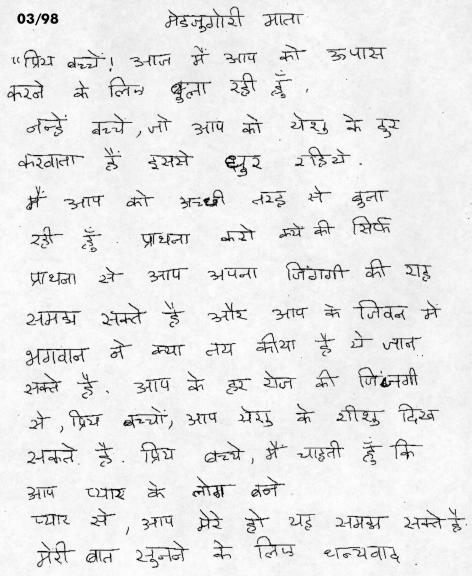 03/98 मेडजुगोरी माता
"प्रिय बच्चें! आज मैं आप को ऊपास
करने के लिए बुला रही हूँ.
नन्हें बच्चे, जो आप को येशु के दुर
करवाता हैं इससे दुर रहिये.
मैं आप को अच्छी तरह से बुना
रही हूँ. प्राथना करो क्ये की सिर्फ
प्राथना से आप अपना जिंगगी की राह
समझ सक्ते है और आप के जिवन में
भगवान ने क्या तय कीया है ये जान
सक्ते है. आप के हर रोज की जिंनगी
से, प्रिय बच्चों, आप येशु के शीशु दिख
सकते है. प्रिय बच्चे, मैं चाहती हूँ कि
आप प्यार के लोग बने
प्यार से, आप मेरे हो यह समझ सक्ते है.
मेरी बात सुनने के लिए धन्यवाद.